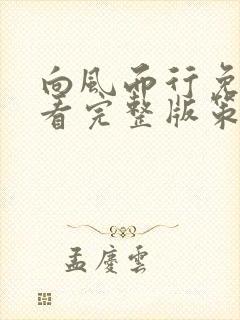 向風而行免
看完整版第
孟慶雲